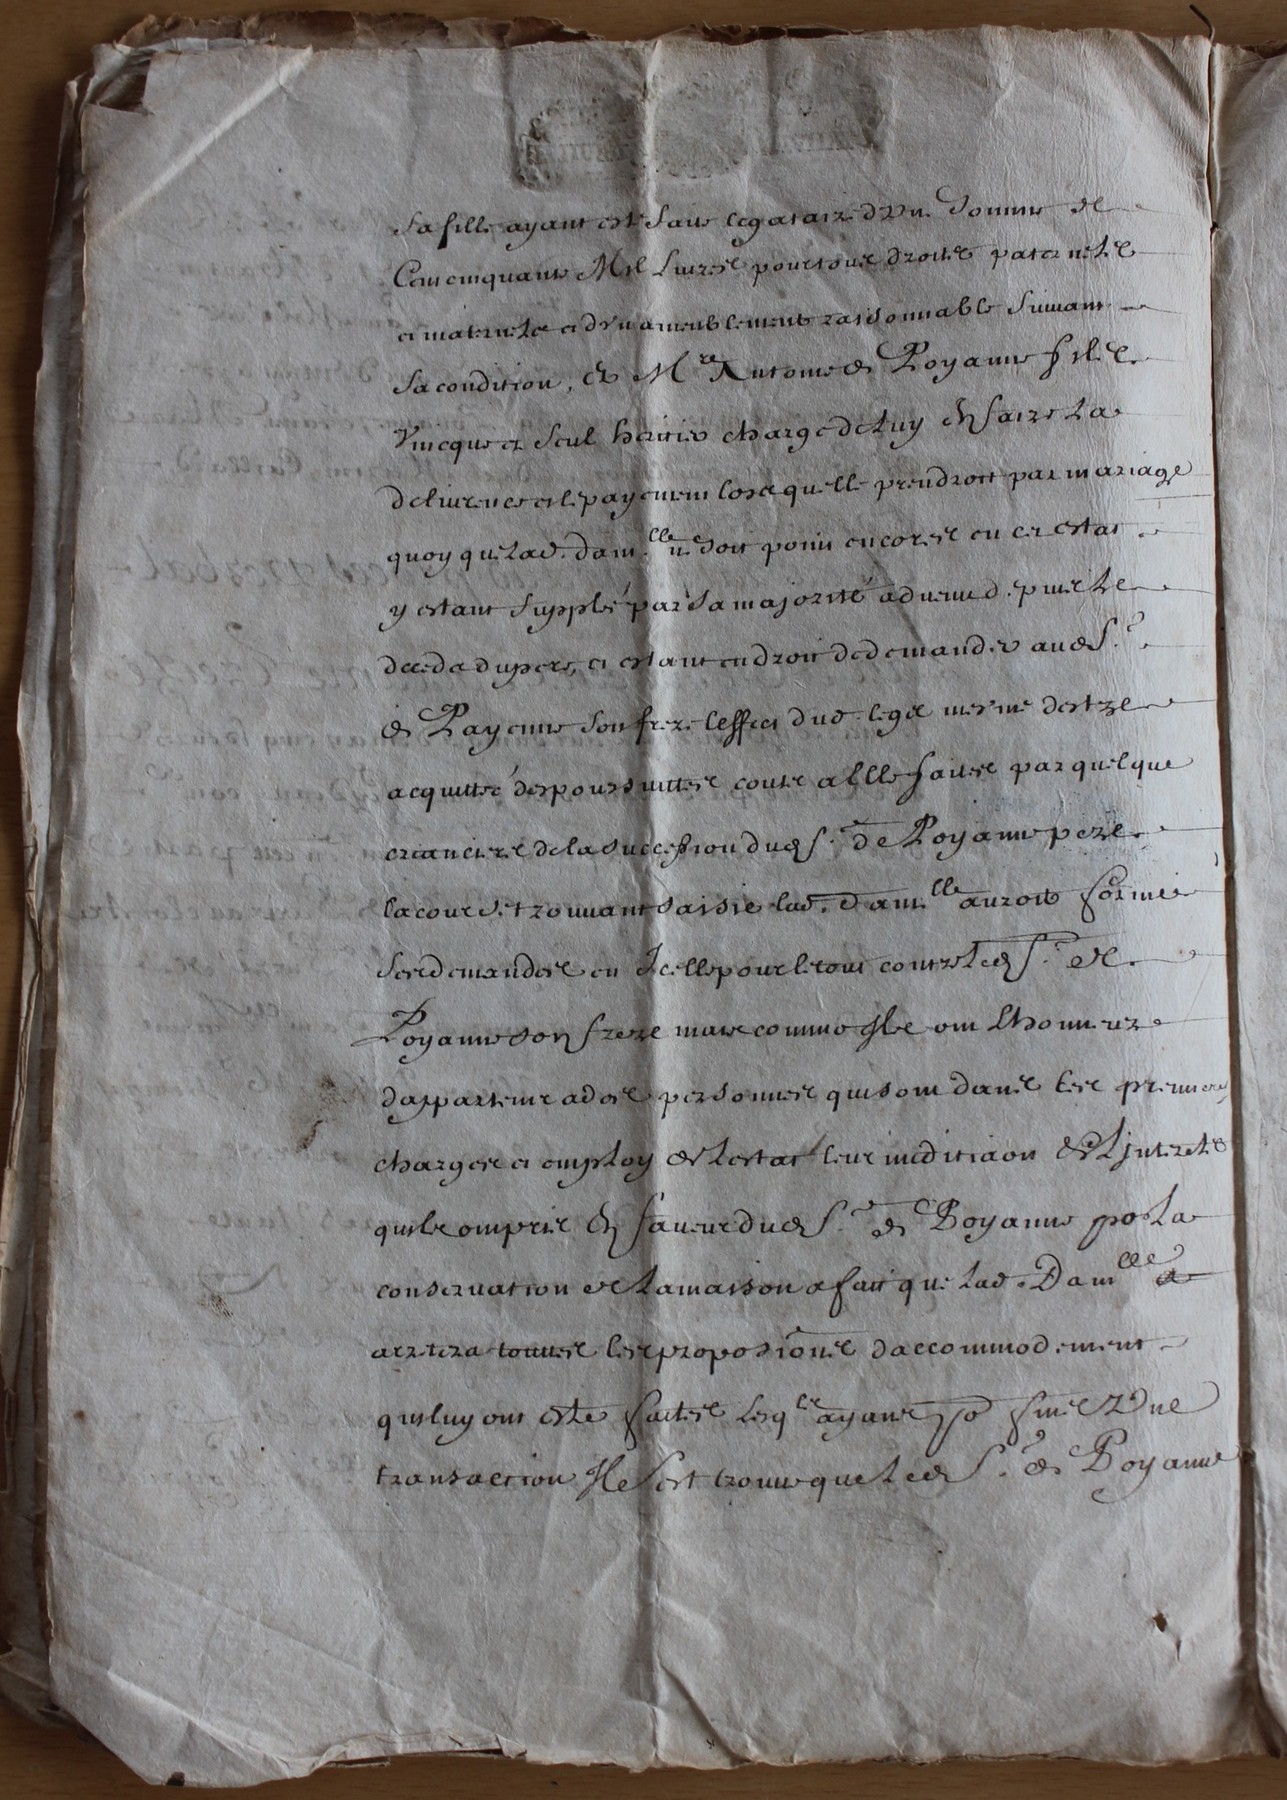 sa fille ayant esté faite legataire d'une somme de
Cent cinquante Mil livres pour tous droits paternels
et maternels et d'un ameublement raisonnable suivant
sa condition, et Mre Antoine de Poyanne fils
Unicque et seul heritier charge de luy en faire la
delivrence et le payement lors quelle prendroit par mariage
quoy que lad. damlle ne soit point encores en cet estat
y estant supplée par sa majorité advenue depuis le
decedz du pere, et estant en droit de demander aud Sr
de Poyenne son frere leffect dud. legs mesme destre
acquittée des poursuittes contre elle faites par quelque
creanciers de la succession dud Sr de Poyanne pere
la cour s'en trouvant saisie lad. damlle auroit formé
ses demandes en Icelle pour le tout contre led Sr de
Poyanne son frere mais comme Ils ont lhonneur
dappartenir a des personnes qui sont dans les premieres
charges et employ de lestat leur mediation et Linterets
quils ont pris en faveur dud Sr de Poyanne pour la
conservation de la maison a fait que lad. Damlle
arretera toutes les propositions daccommodement
qui luy ont esté faites lesqles ayant esté suivies Dune
transaction Il sest trouve que led Sr de Poyanne